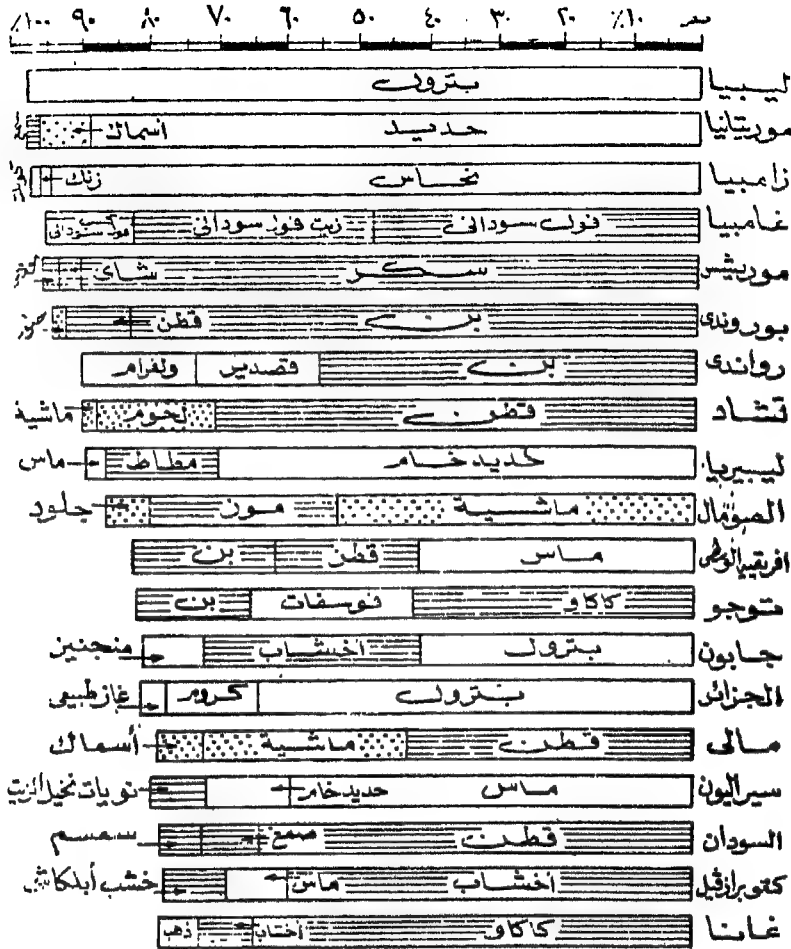 صفر ٪١٠ ٢٠ ٣٠ ٤٠ ٥٠ ٦٠ ٧٠ ٨٠ ٩٠ ٪١٠٠
ليبيا بترول
موريتانيا حديد أسماك
زامبيا نحاس زنك
غامبيا فول سودانى زيت فول سودانى كسب فول سودانى
موريشس سكر شاى
بوروندى بن قطن
رواندى بن قصدير ولفرام
تشاد قطن لحوم ماشية
ليبيريا حديد خام مطاط ماس
الصومال ماشية موز جلود
افريقيا الوسطى ماس قطن بن
توجو كاكاو فوسفات بن
جابون بترول أخشاب منجنيز
الجزائر بترول كروم غاز طبيعى
مالى قطن ماشية أسماك
سيراليون ماس حديد خام نويات نخيل الزيت
السودان قطن صمغ سمسم
كنغو برازفيل أخشاب ماس خشب أبلكاش
غانا كاكاو أخشاب ذهب